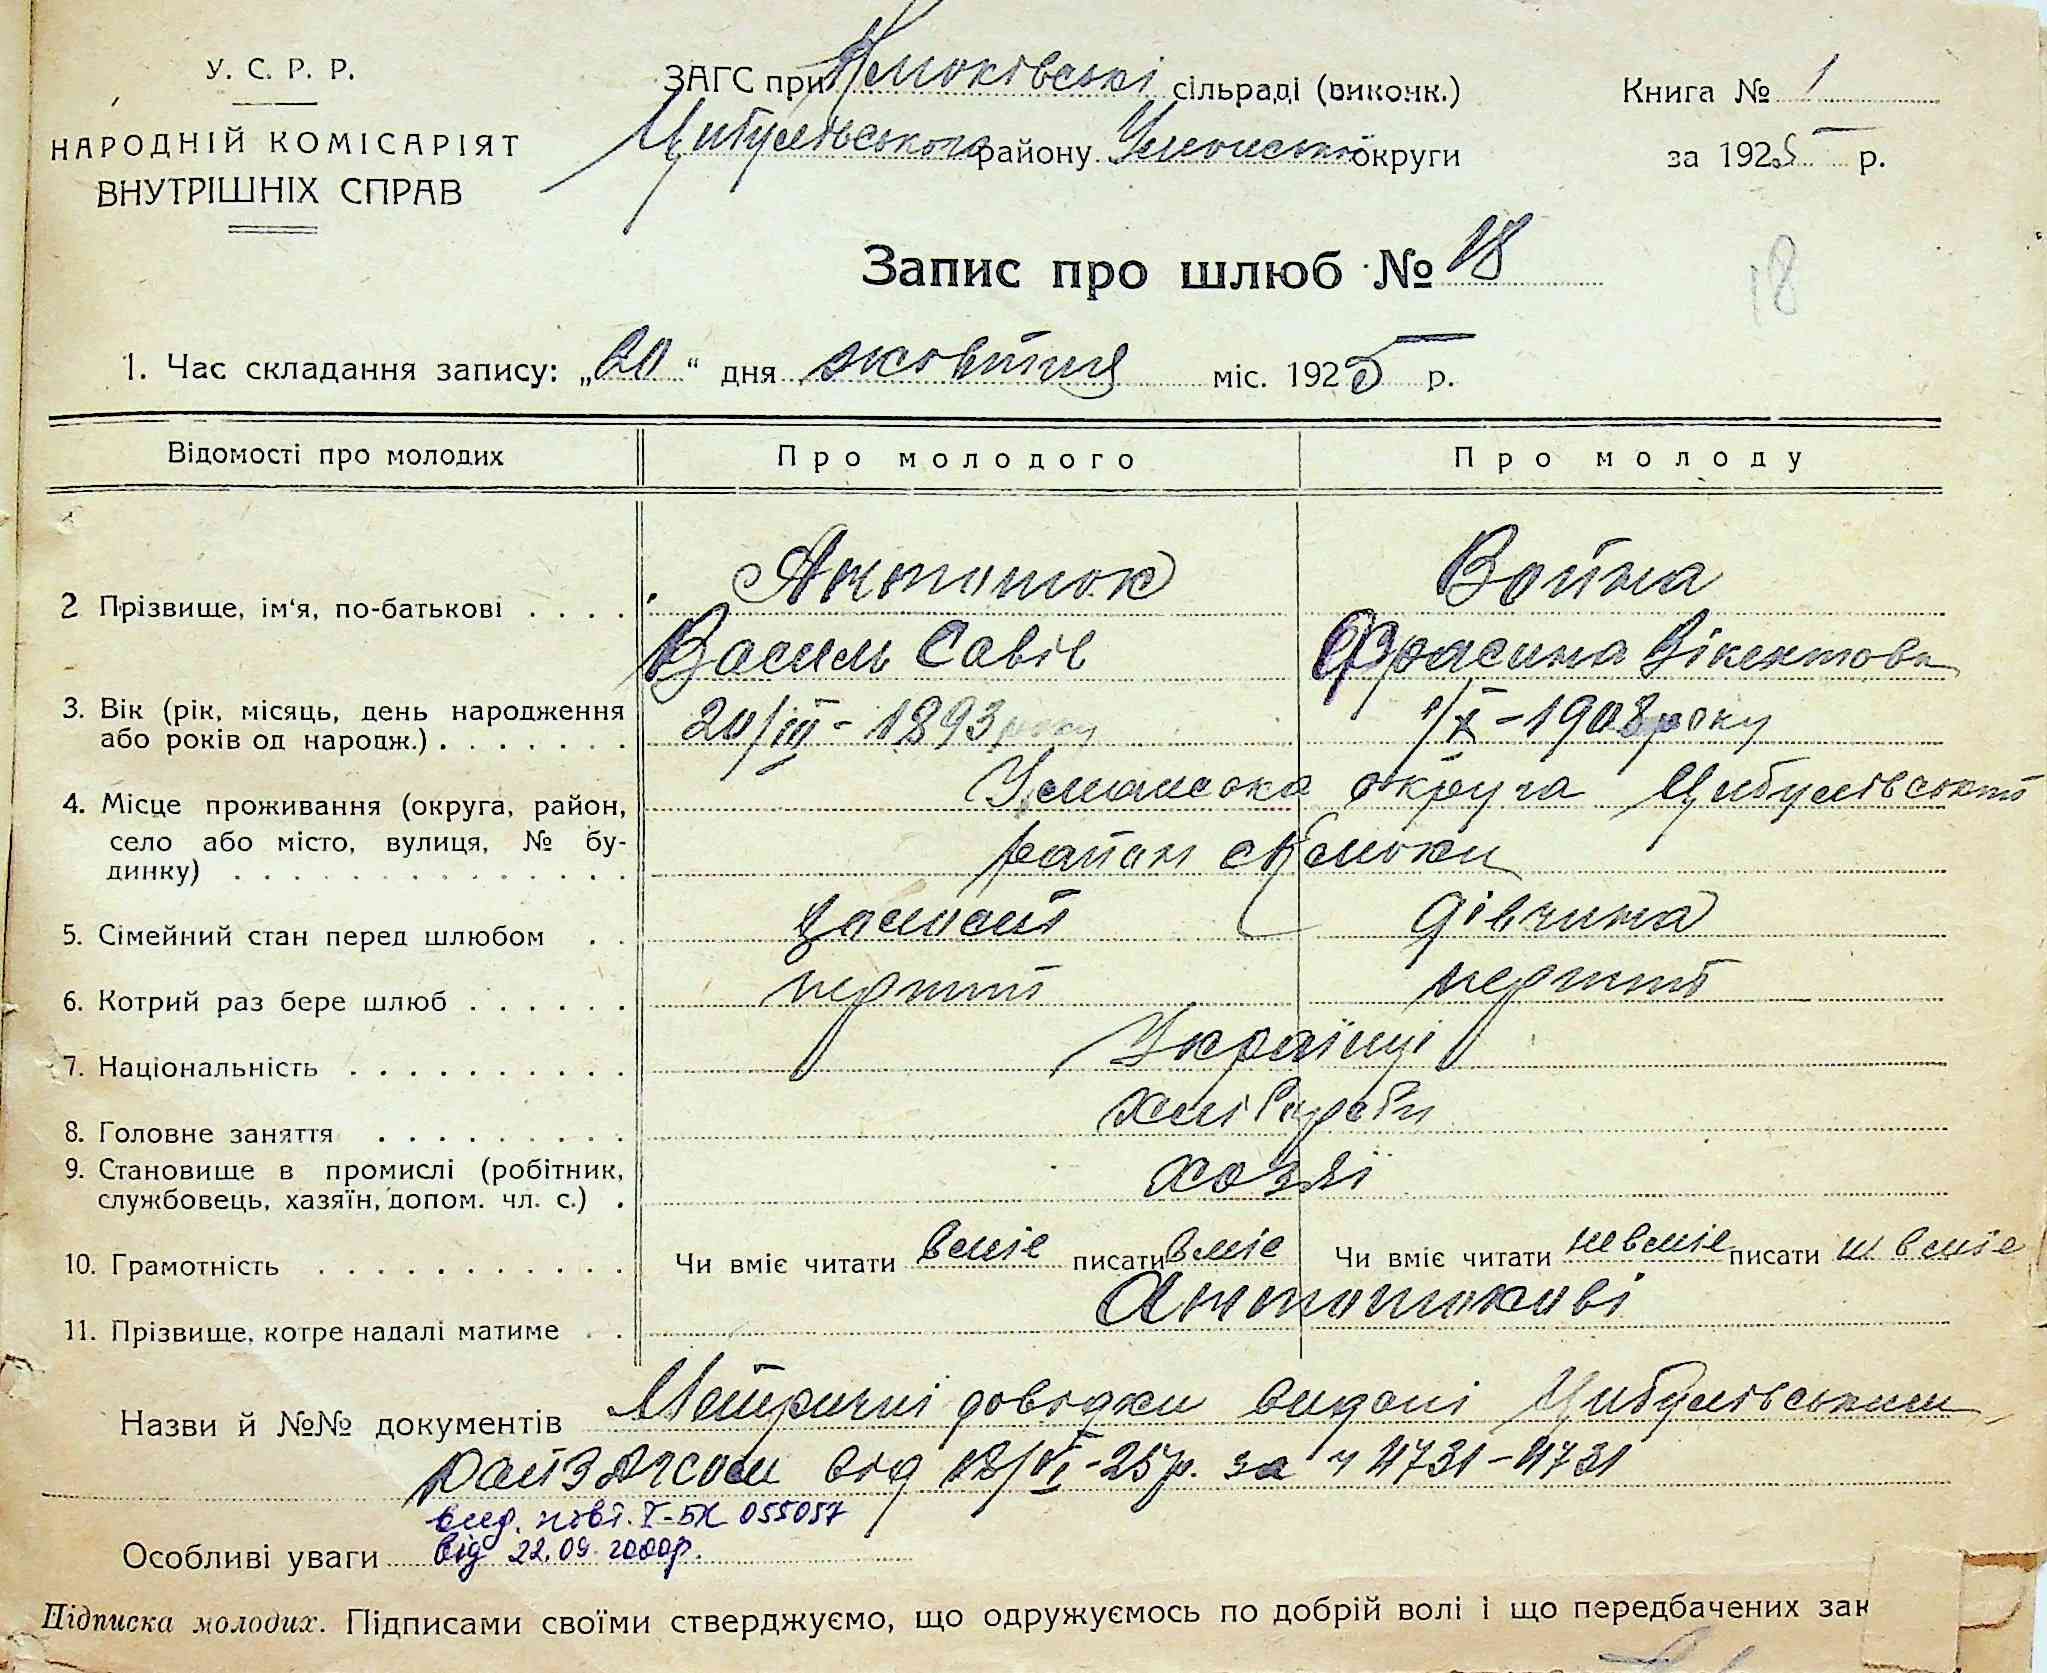 У. С. Р. Р.
НАРОДНІЙ КОМІСАРІЯТ
ВНУТРІШНІХ СПРАВ
ЗАГС при сільраді (виконк.)
Цибулівського району Уманської округи
Книга № 1
за 1925 р.
Запис про шлюб № 18
18
1. Час складання запису: „20“ дня жовтня міс. 1925 р.
Відомості про молодих Про молодого Про молоду
2 Прізвище, ім'я, по-батькові . . . . Антошок Война
Василь Савів Фрасина Вікентова
3. Вік (рік, місяць, день народження
або років од народж.) . . . . . . . 20/III - 1893 року 1/X - 1908 року
4. Місце проживання (округа, район, Уманська округа Цибулівський
село або місто, вулиця, № бу-
динку) . . . . . . . . . . . . . . район
5. Сімейний стан перед шлюбом . . дівчина
6. Котрий раз бере шлюб . . . . . . перший перший
7. Національність . . . . . . . . . . Українці
8. Головне заняття . . . . . . . . . хлібороби
9. Становище в промислі (робітник,
службовець, хазяїн, допом. чл. с.) .
10. Грамотність . . . . . . . . . . . Чи вміє читати вміє писати вміє Чи вміє читати не вміє писати не вміє
11. Прізвище, котре надалі матиме . . Антошокові
Назви й №№ документів Метричні довідки видані Цибулівським
райЗАГСом від 18/VI-25р. за ч 4731-4731
вид. повт. І-БК 055057
Особливі уваги від 22.09.2000р.
Підписка молодих. Підписами своїми стверджуємо, що одружуємось по добрій волі і що передбачених зак